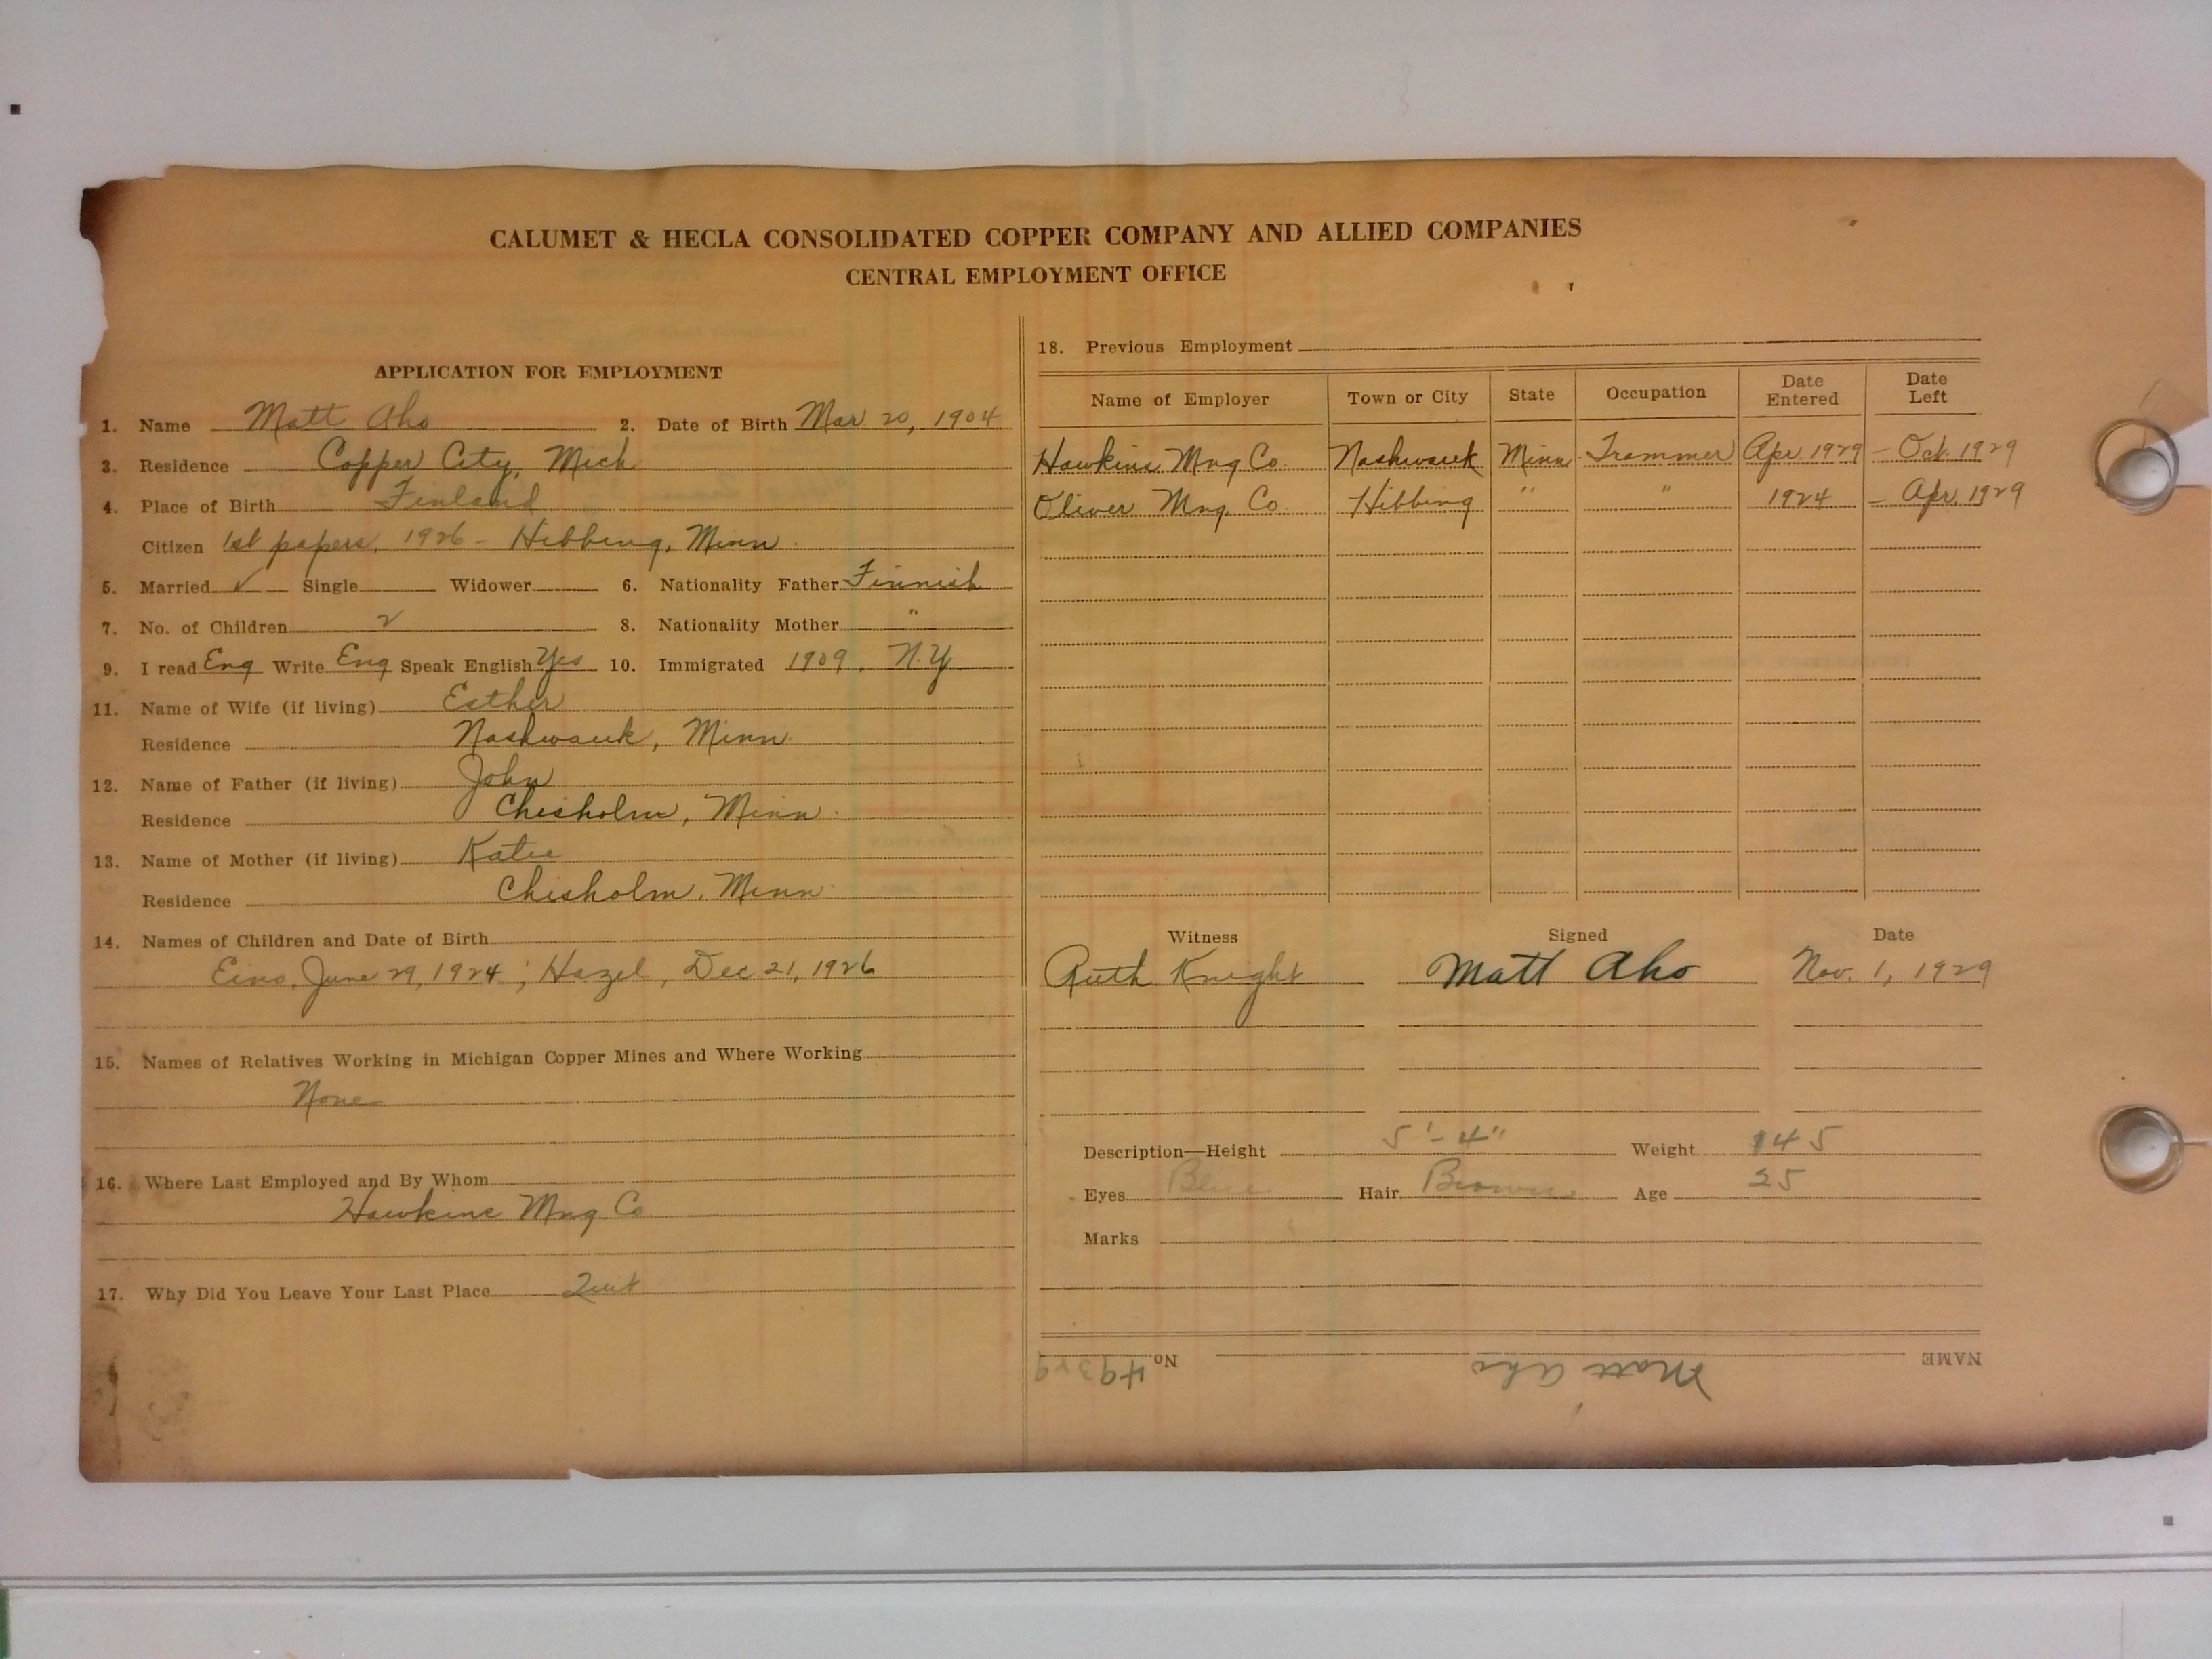 CALUMET & HECLA CONSOLIDATED COPPER COMPANY AND ALLIED COMPANIES
CENTRAL EMPLOYMENT OFFICE
APPLICATION FOR EMPLOYMENT
1. Name Matt Aho 2. Date of Birth Mar 20, 1904
3. Residence Copper City, Mich
4. Place of Birth Finland
Citizen 1st papers, 1926 - Hibbing, Minn.
5. Married ✓ Single Widower 6. Nationality Father Finnish
7. No. of Children 2 8. Nationality Mother "
9. I read Eng Write Eng Speak English Yes 10. Immigrated 1909, N.Y
11. Name of Wife (if living) Esther
Residence Nashwauk, Minn.
12. Name of Father (if living) John
Residence Chisholm, Minn.
13. Name of Mother (if living) Katie
Residence Chisholm, Minn.
14. Names of Children and Date of Birth
Eino, June 29, 1924; Hazel, Dec 21, 1926
15. Names of Relatives Working in Michigan Copper Mines and Where Working
None
16. Where Last Employed and By Whom
Hawkins Mng Co
17. Why Did You Leave Your Last Place Quit
18. Previous Employment
Name of Employer Town or City State Occupation Date Entered Date Left
Hawkins Mng Co. Nashwauk Minn. Trammer Apr 1929 - Oct. 1929
Oliver Mng. Co. Hibbing " " 1924 - Apr. 1929
Witness Signed Date
Ruth Knight Matt Aho Nov. 1, 1929
Description—Height 5'-4" Weight 145
Eyes Blue Hair Brown Age 25
Marks
NAME Matt Aho No. 49329